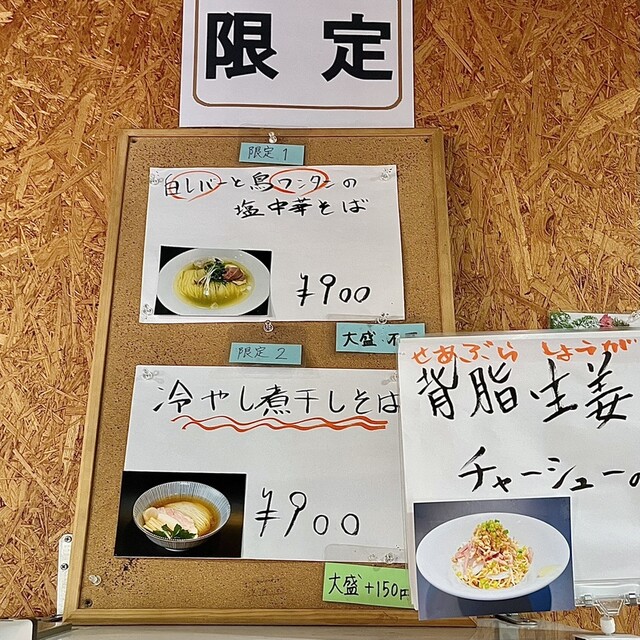 限定
限定1
白レバーと鳥ワンタンの
塩中華そば
¥900
大盛 不
限定2
冷やし煮干しそば
¥900
大盛+150円
せあぶら しょうが
背脂生姜
チャーシューの